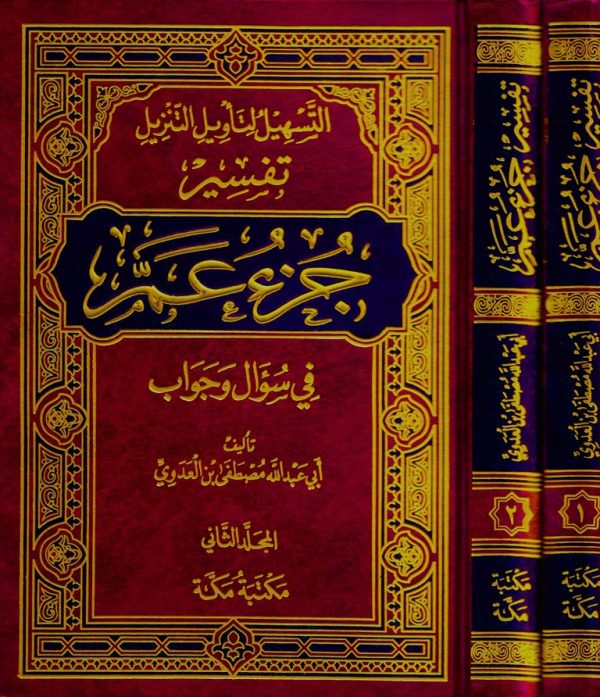 التَّسْهِيلُ لتَأوِيلِ التَّنْزِيلِ
تَفْسِير
جُزْءُ عَمَّ
فِي سُؤَال وَجَوَاب
تأليف
أبي عَبْدِ اللَّه مُصْطَفَىٰ بْنِ الْعَدَوِيِّ
المجلد الثاني
مَكتَبَةُ مَكَّة
تفسير جزء عم
أبي عبد الله مصطفى بن العدوي
٢
مكتبة
مكة
تفسير جزء عم
أبي عبد الله مصطفى بن العدوي
١
مكتبة
مكة